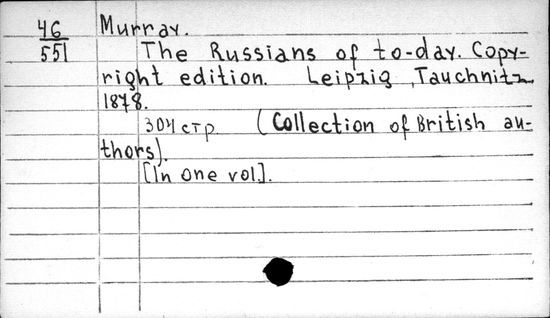 46 Murray.
551 The Russians of to-day. Copy-
right edition. Leipzig, Tauchnitz
1878.
304 стр (Collection of British au-
thors).
[In one vol.].